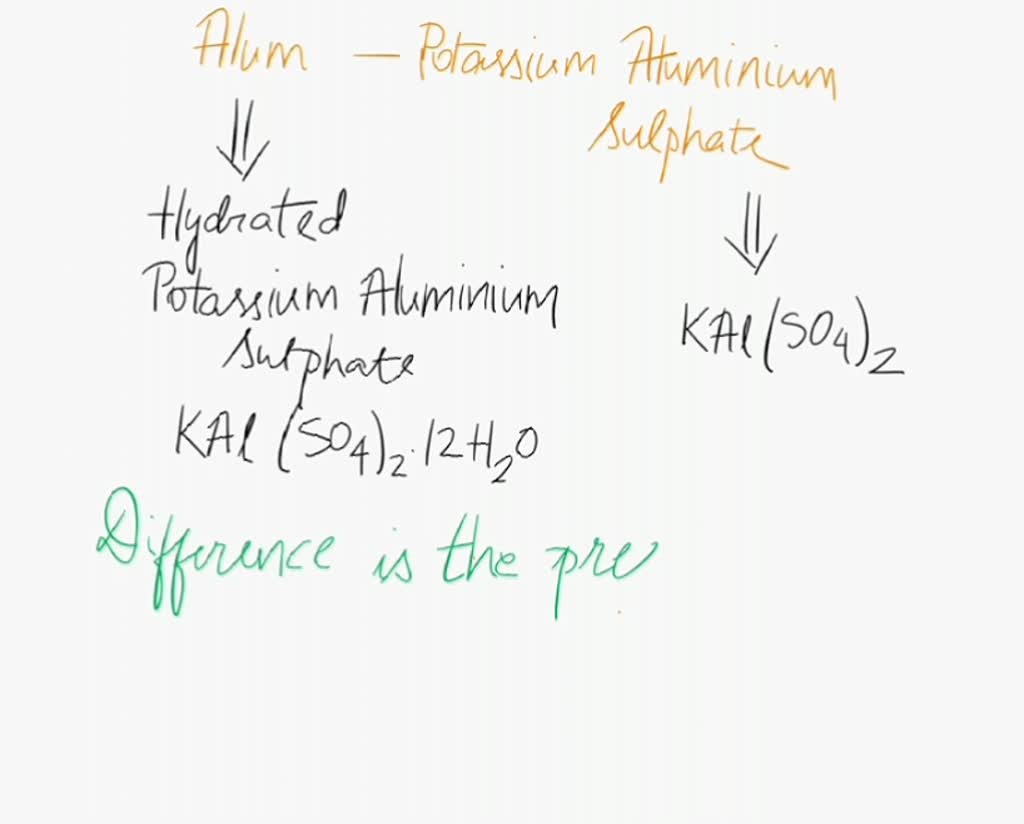 Alum — Potassium Aluminium
Sulphate
⇓
Hydrated
Potassium Aluminium
Sulphate
KAl(SO₄)₂·12H₂O
⇓
KAl(SO₄)₂
Difference is the pre